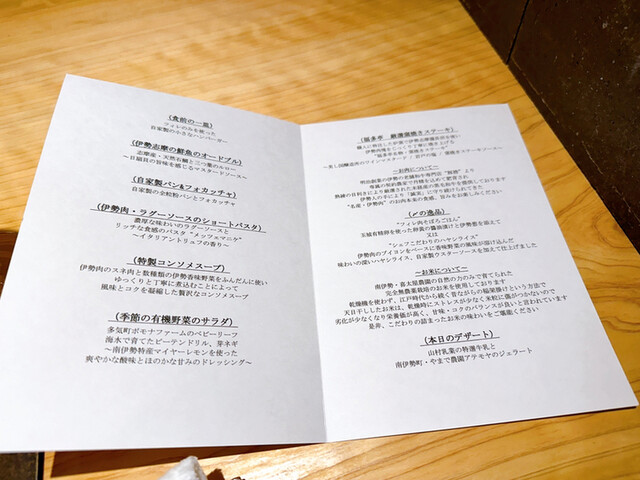 (食前の一皿)
フィレのみを使った
自家製の小さなハンバーガー
(伊勢志摩の鮮魚のオードブル)
志摩産・天然石鯛と三つ葉のルロー
～自織貝の旨味を感じるマスタードソース～
(自家製パン&フォカッチャ)
自家製の全粒粉パンとフォカッチャ
(伊勢肉・ラグーソースのショートパスタ)
濃厚な味わいのラグーソースと
リッチな食感のパスタ“メッツェマニケ”
～イタリアントリュフの香り～
(特製コンソメスープ)
伊勢肉のスネ肉と数種類の伊勢香味野菜をふんだんに使い
ゆっくりと丁寧に煮込むことによって
風味とコクを凝縮した贅沢なコンソメスープ
(季節の有機野菜のサラダ)
多気町ポモナファームのベビーリーフ
海水で育てたピーテンドリル、芽ネギ
～南伊勢特産マイヤーレモンを使った
爽やかな酸味とほのかな甘みのドレッシング～
ステーキ)
～お肉について～
明治創業の伊勢の老舗和牛専門店
伊勢人の手により「誠実」に守り続けられてきた
“名産・伊勢肉”のお肉本来の食感、旨みをお楽しみください
(〆の逸品)
“フィレ肉そぼろごはん”
玉城有精卵を使った卵黄の醤油漬けと伊勢葱を添えて
又は
“シェフこだわりのハヤシライス”
伊勢肉のブイヨンをベースに香味野菜の風味が溶け込んだ
味わいの深いハヤシライス、自家製ウスターソースを加えて仕上げました
～お米について～
南伊勢・喜太屋農園の自然の力のみで育てられた
完全無農薬栽培のお米を使用しております
乾燥機を使わず、江戸時代から続く昔ながらの稲架掛けという方法で
天日干ししたお米は、乾燥時にストレスが少なく米粒に傷がつかないので
劣化が少なくなり栄養価が高く、甘味・コクのバランスが良いと言われています
是非、こだわりの詰まったお米の味わいをご堪能ください
(本日のデザート)
山村乳業の特選牛乳と
南伊勢町・やまで農園アテモヤのジェラート